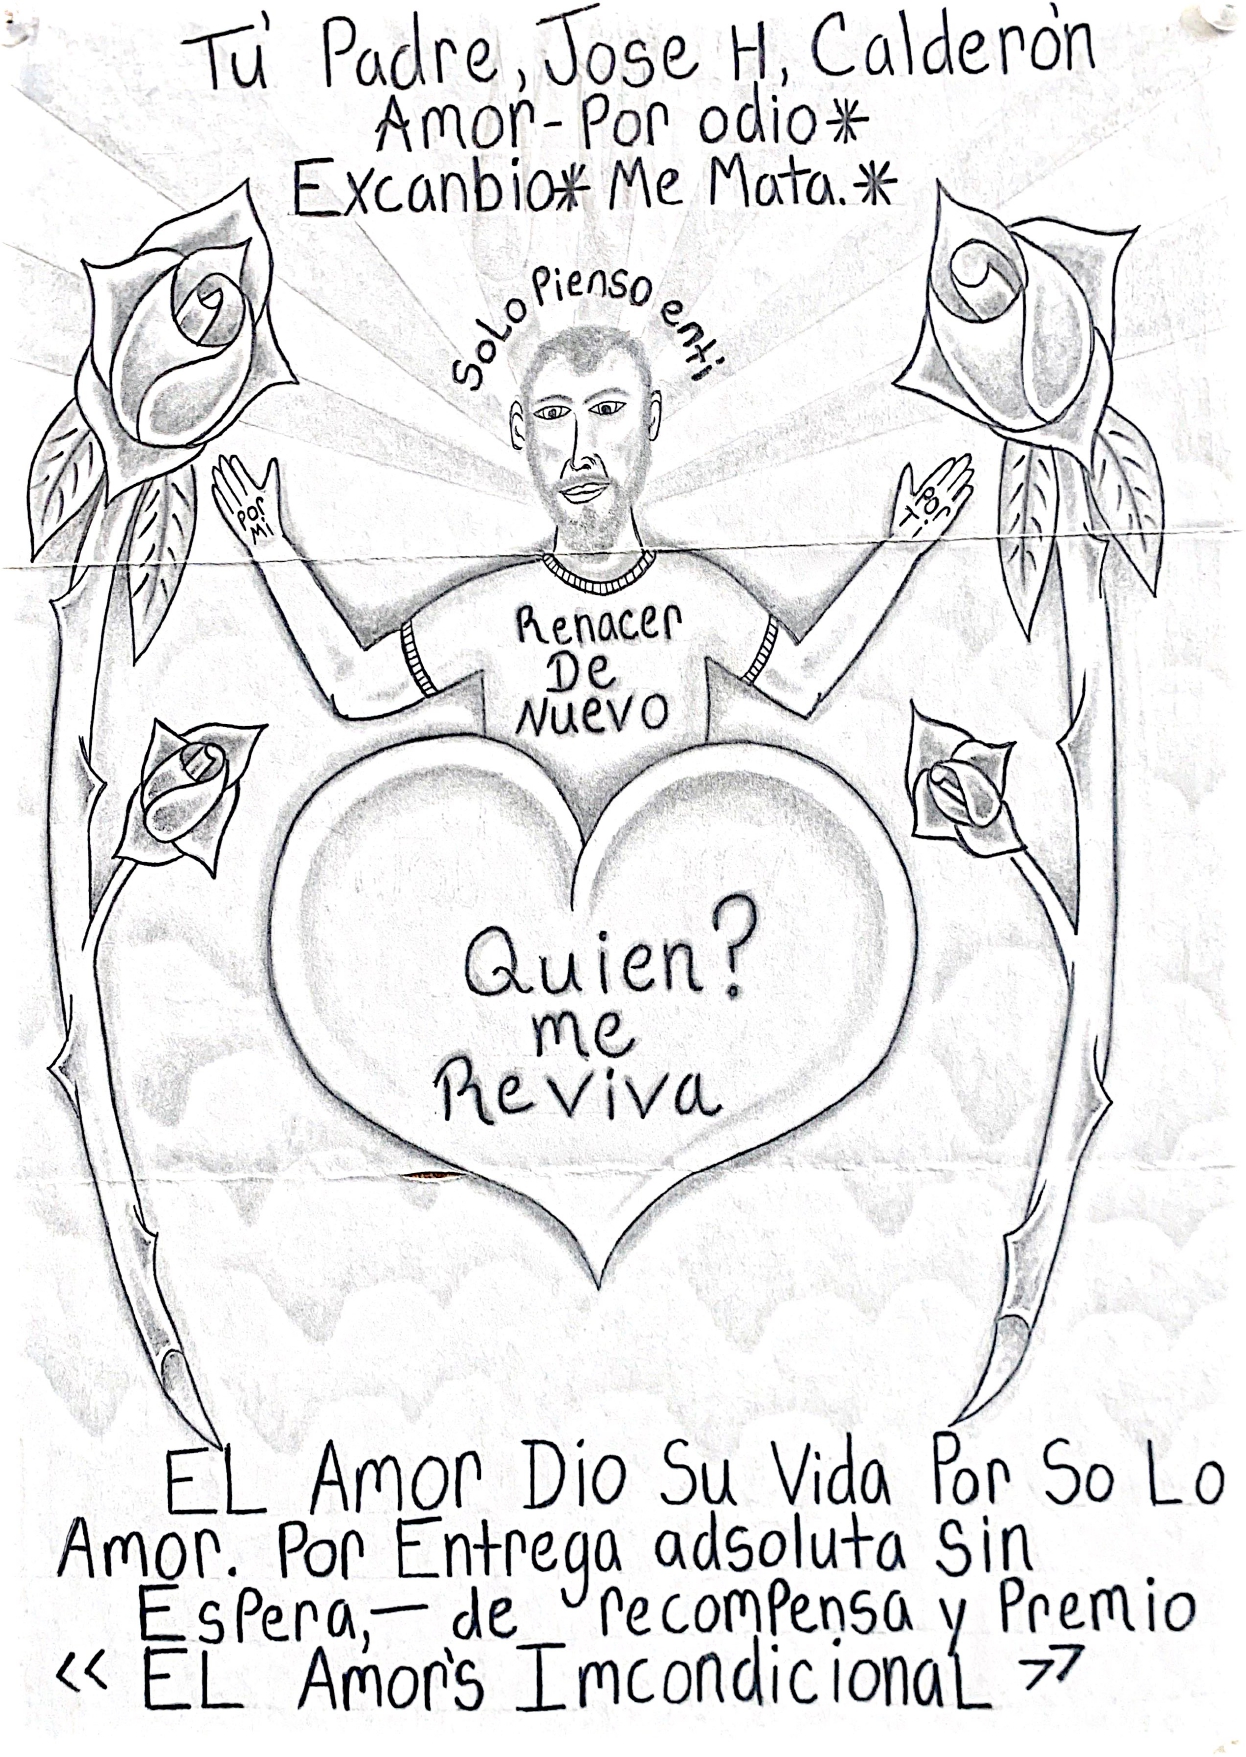 Tú Padre, Jose H, Calderón
Amor-Por odio*
Excanbio* Me Mata.*
SoLo Pienso enti
Por
Mi
Por
Ti
Renacer
De
Nuevo
Quien?
me
Reviva
EL Amor Dio Su Vida Por So Lo
Amor. Por Entrega adsoluta Sin
Espera,— de recompensa y Premio
<< EL Amor's ImcondicionaL >>